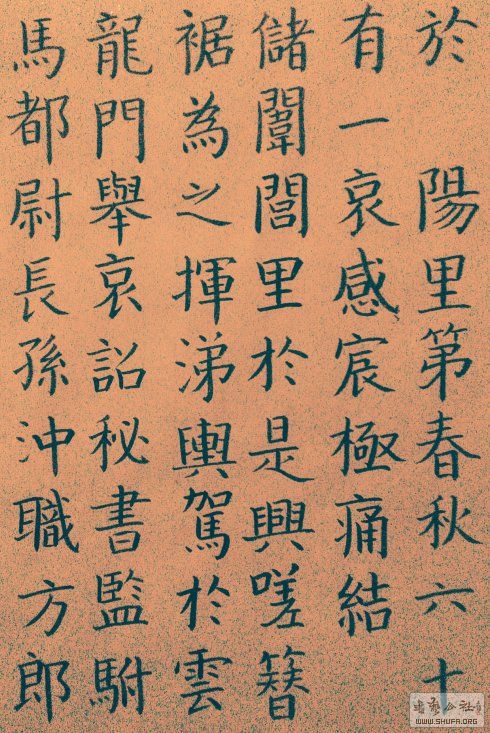 於陽里第春秋六十
有一哀感宸極痛結
儲闈閭里於是興嗟簪
裾為之揮涕輿駕於雲
龍門舉哀詔秘書監駙
馬都尉長孫沖職方郎
WWW.SHUFA.ORG